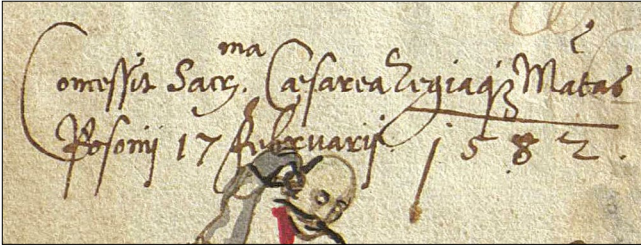 Concessit Sacr.ma Cæsarea Regiaq₃ Mãtas
Posonij 17 februarij 1582.